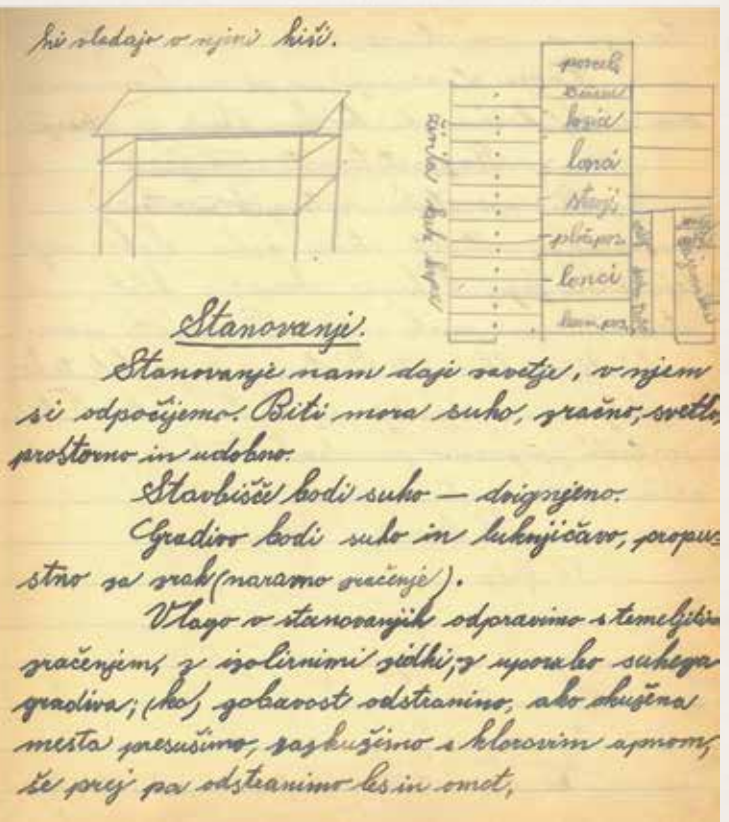 ki vladajo v njeni hiši.
porcel.
lonci
ploč. por.
lonci
Stanovanje.
Stanovanje nam daje zavetje, v njem
si odpočijemo. Biti mora suho, zračno, svetlo,
prostorno in udobno.
Stavbišče bodi suho — dvignjeno.
Gradivo bodi suho in luknjičavo, propu-
stno za zrak (naravno zračenje).
Vlago v stanovanjih odpravimo s temeljitim
zračenjem, z izolirnimi zidki, z uporabo suhega
gradiva; (ko) gobavost odstranimo, ako okužena
mesta presušimo, razkužimo s klorovim apnom,
še prej pa odstranimo les in omet,